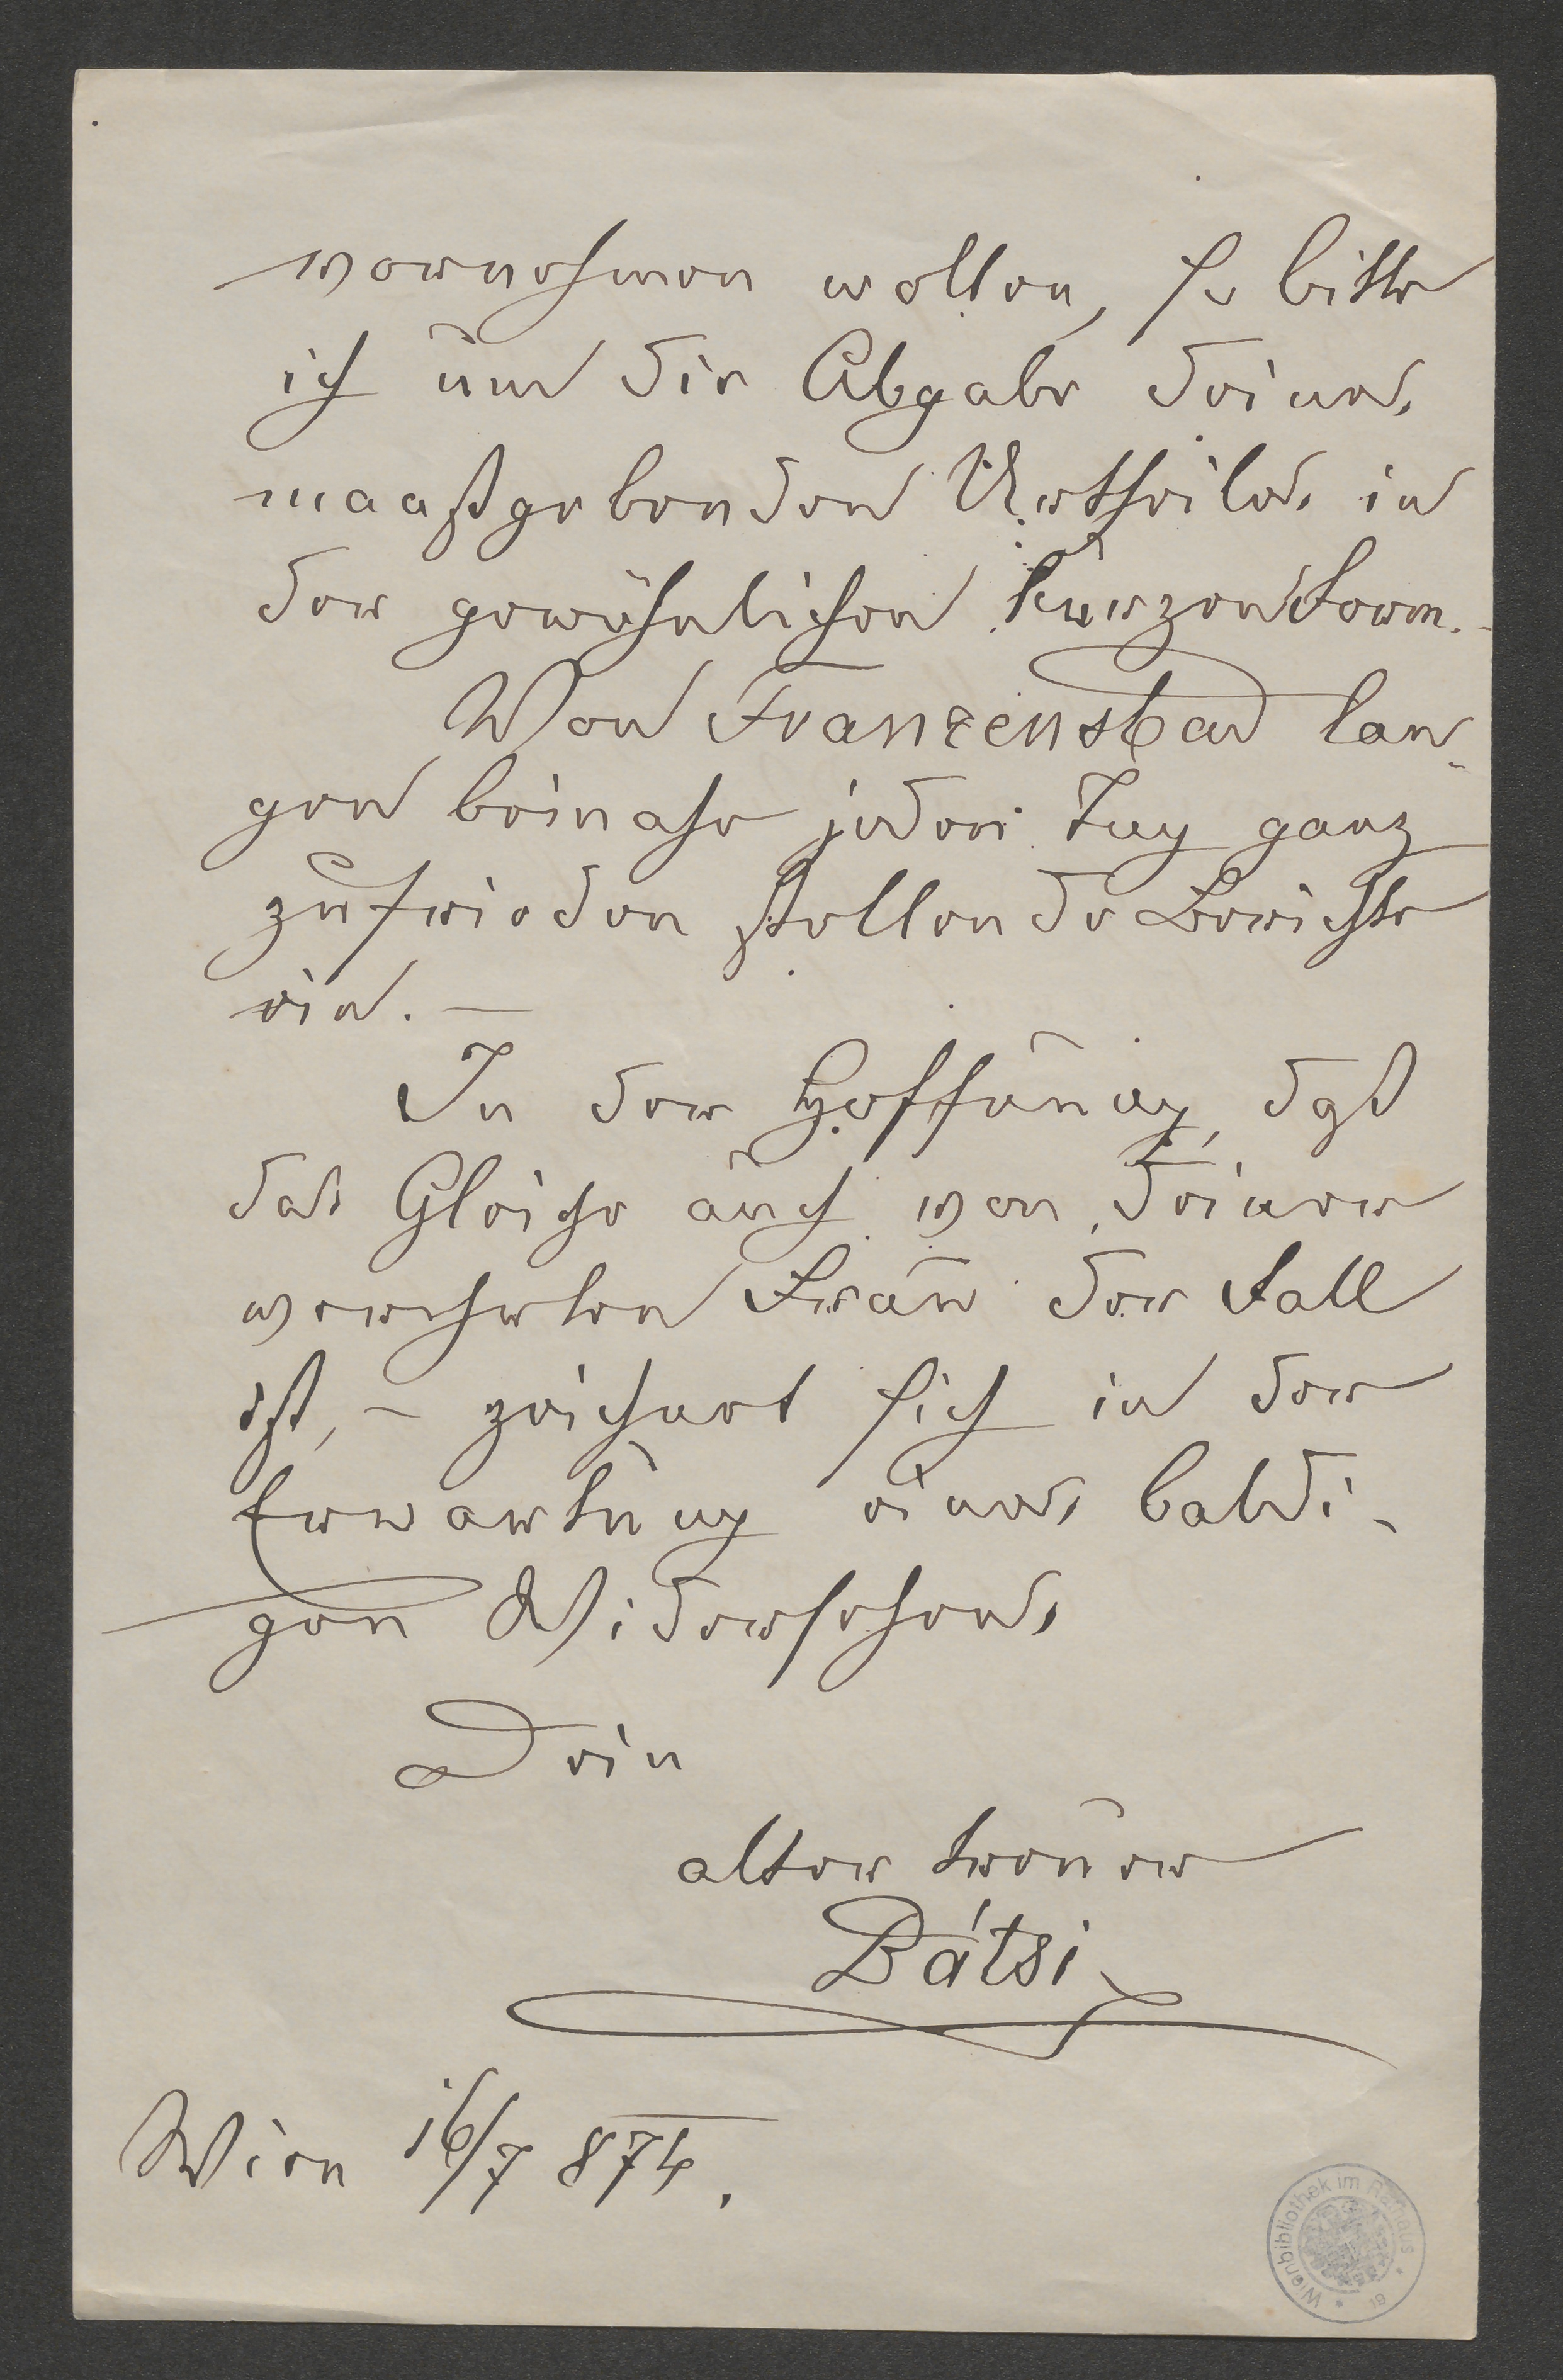 vornehmen wollen, so bitte
ich um die Abgabe Deines
maaßgebenden Urtheiles in
der gewöhnlichen kurzen Form. -
Von Franzensbad lan-
gen beinahe jeden Tag ganz
zufrieden stellende Berichte
ein. —
In der Hoffnung, daß
das Gleiche auch von Deiner
verehrten Frau der Fall
ist, - zeichnet sich in der
Erwartung eines baldi-
gen Widersehens
Dein
alter treuer
Bátsi
Wien 16/7 874.
Wienbibliothek im Rathaus